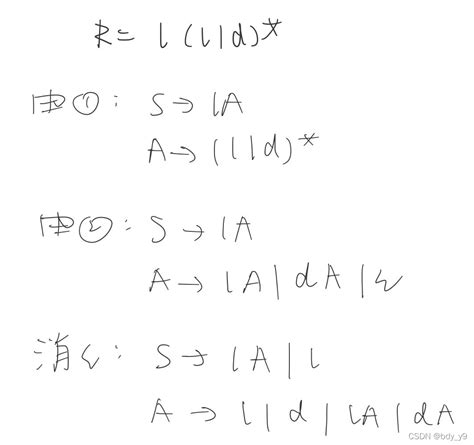 R = l (l|d)*
由①: S → lA
A → (l|d)*
由②: S → lA
A → lA | dA | ε
消ε: S → lA | l
A → l | d | lA | dA
CSDN @bdy_y9